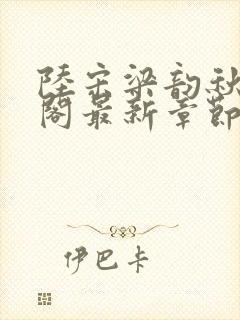 陸宗梁韵秋
閣最新章節
伊巴卡